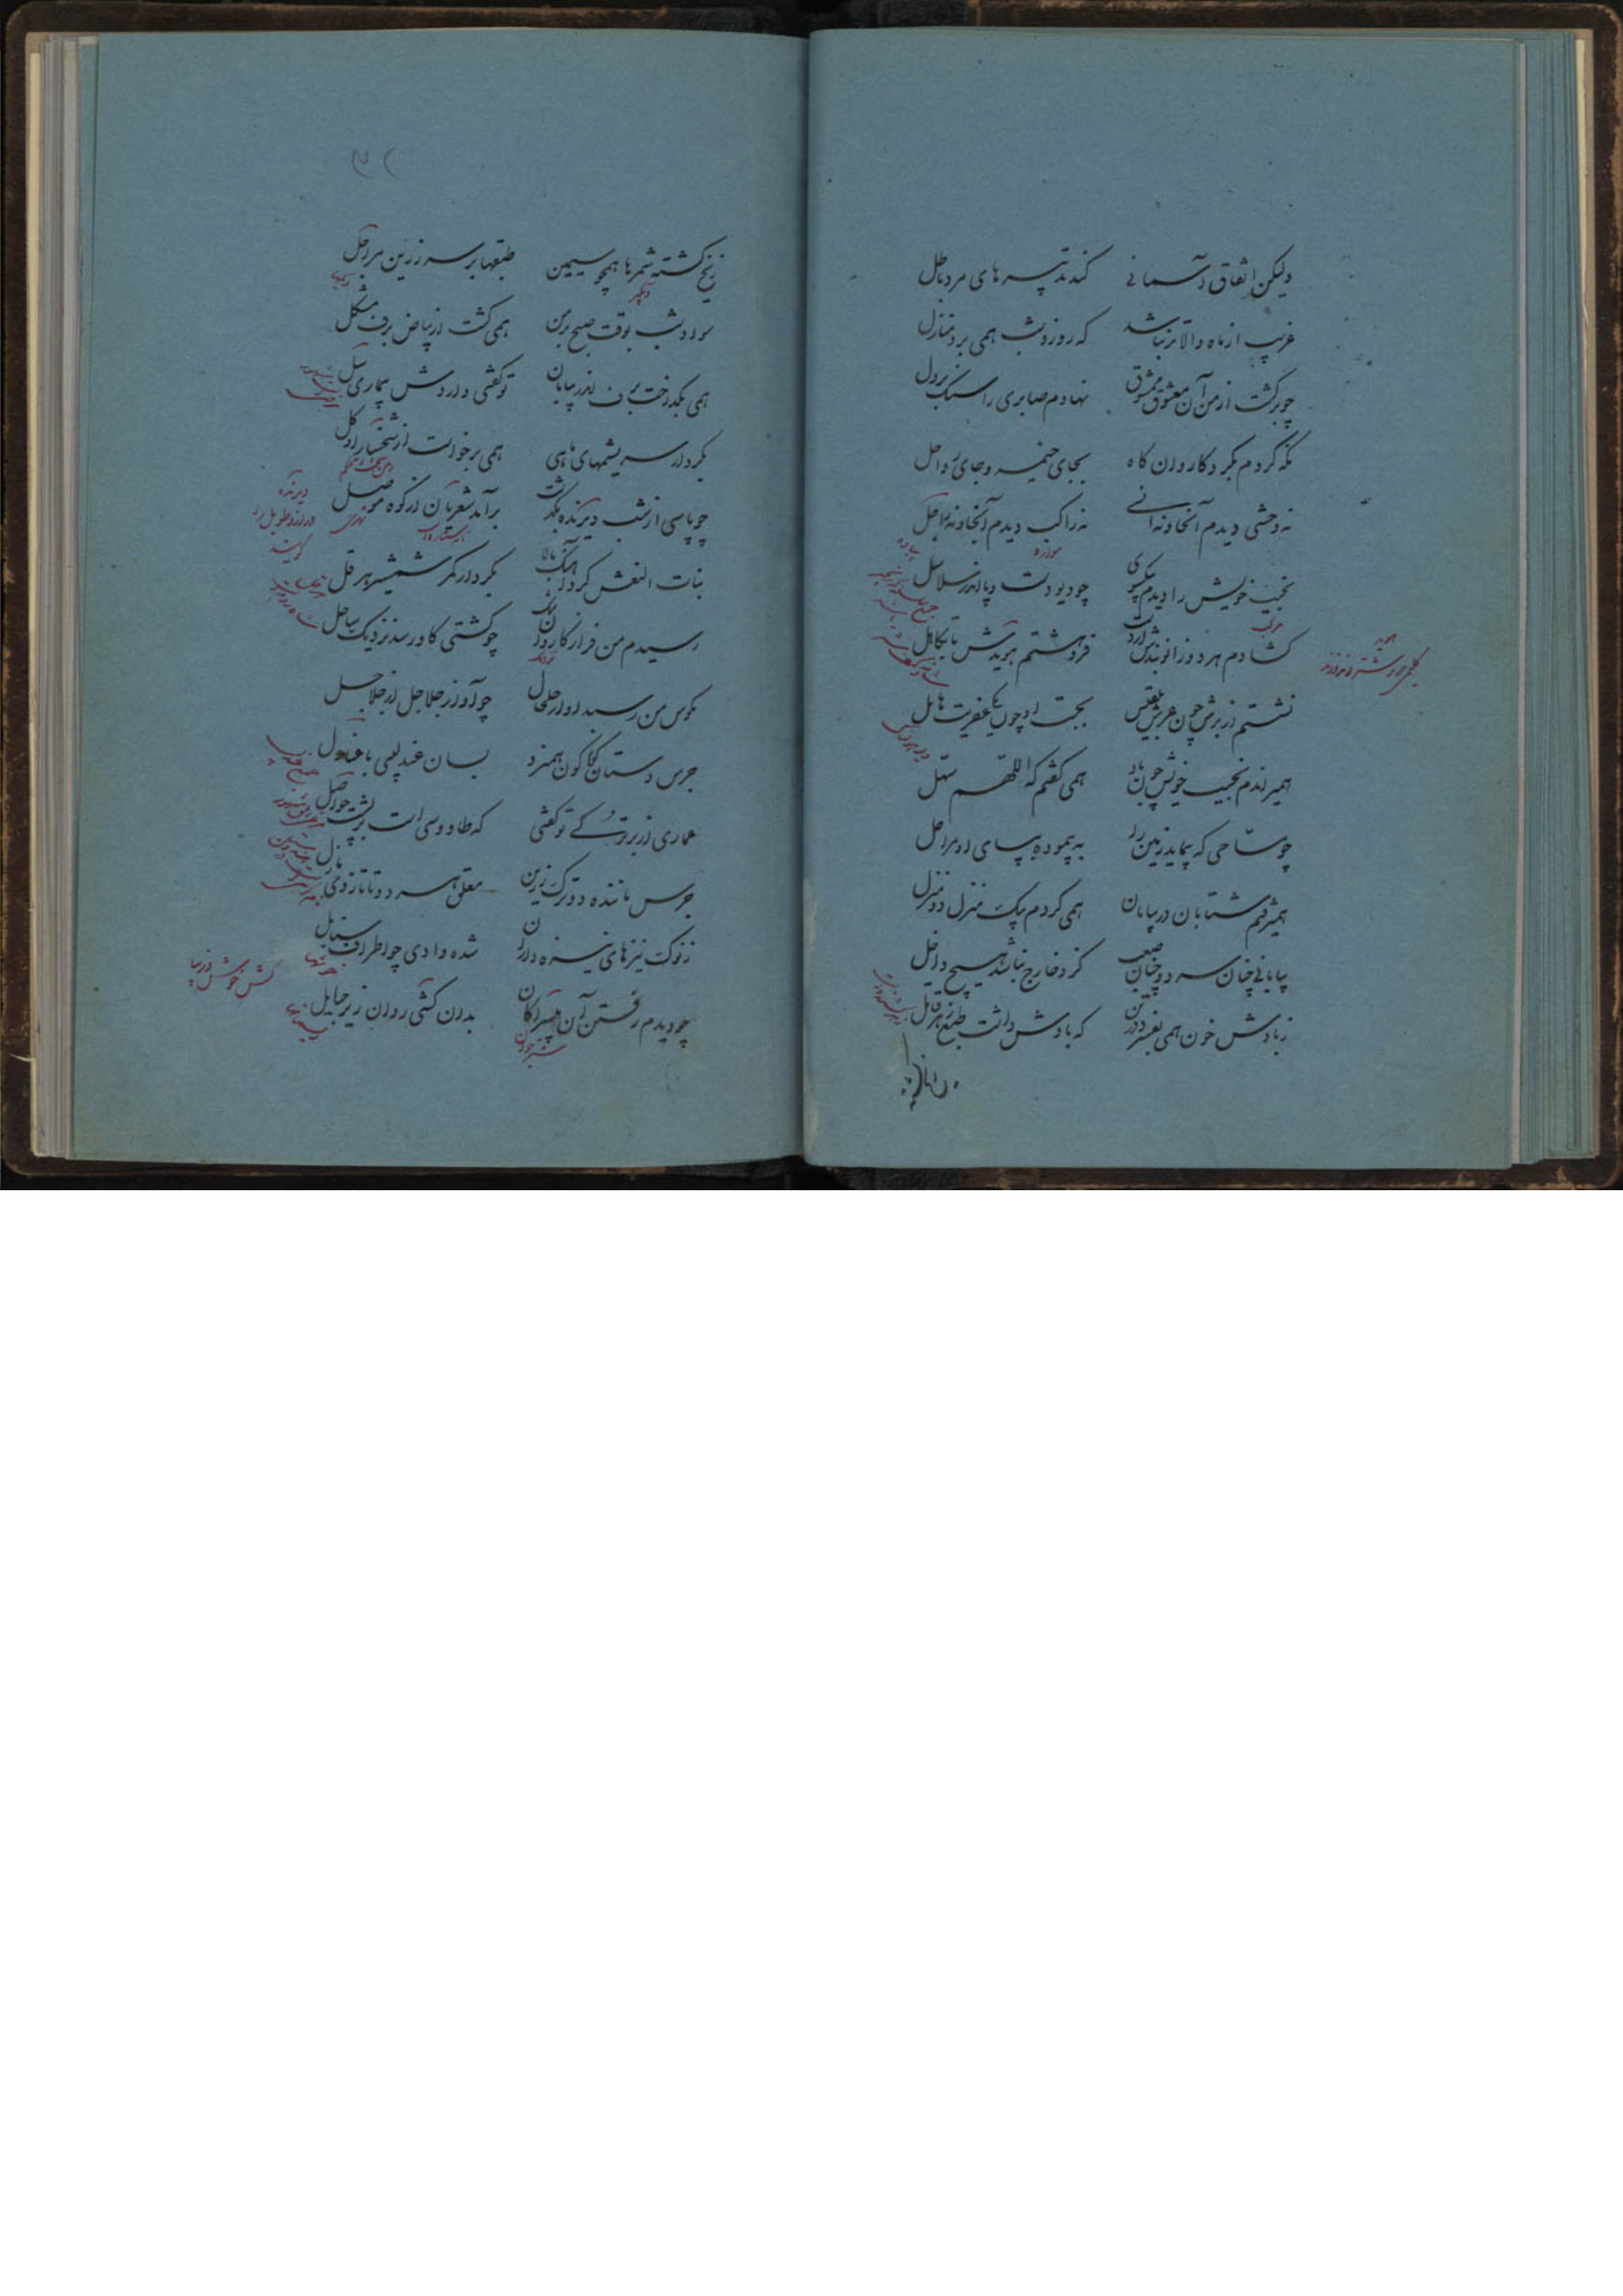 ولیکن اتفاق آسمانی کند تدبیرهای مرد باطل
غریب از ماه والاتر نباشد که روز و شب همی برد منازل
چو برگشت از من آن معشوق ممشوق نهادم صابری را سنگ بر دل
نگه کردم بگرد کاروان گاه بجای خیمه و جای رواحل
نه وحشی دیدم آنجا و نه انسی نه راکب دیدم آنجا و نه راجل
سواره
پیاده
نجیب خویش را دیدم بیکسوی چو دیو دست و پا اندر سلاسل
مرکب
گشادم هر دو زانوبندش از دست فروهشتم هویدش تا بکاهل
هوید
نشستم از برش چون عرش بلقیس بجست او چون یکی عفریت هایل
همیراندم نجیب خویش چون باد همی گفتم که اللهم سهل
چو مساحی که پیماید زمین را به پیموده بپای او مراحل
همیرفتم شتابان در بیابان همی کردم بیک منزل دو منزل
بیابانی چنان سرد و چنان صعب کزو خارج نباشد هیچ داخل
ز بادش خون همی بفسرد در تن که بادش داشت طبع زهر قاتل
۳۲
ز یخ گشته شمرها همچو سیمین طبقها بر سر زرین مراجل
آبگیر
سواد شب بوقت صبح بر من همی گشت از بیاض برف مشکل
همی بگداخت برف اندر بیابان تو گفتی دارد ش بیماری سل
بکردار سریشمهای ماهی همی برخواست از شخسارا و گل
چو پاسی از شب دیرنده بگذشت برآمد شعریان از کوه موصل
دیرنده
دراز و طویل را
گویند
بنات النعش کرد آهنگ بالا بکردار کمر شمشیر هرقل
رسیدم من فراز کاروان تنگ چو کشتی کاو رسد نزدیک ساحل
نزدیک
بگوش من رسید آواز خلخال چو آواز جلاجل از جلاجل
جرس دستان گوناگون همیزد بسان عندلیبی با عنادل
عماری از بر ترکی تو گفتی که طاووسی است بر پشت حواصل
جرس ماننده دو ترک زرین معلق هر دو تا زانوی بازل
ز نوک نیزهای نیزه داران شده وادی چو اطراف سنابل
خوشها
چو دیدم رفتن آن بیسراکان بدان کشی روان زیر جبایل
شتر جوان
کش خوش و زیبا